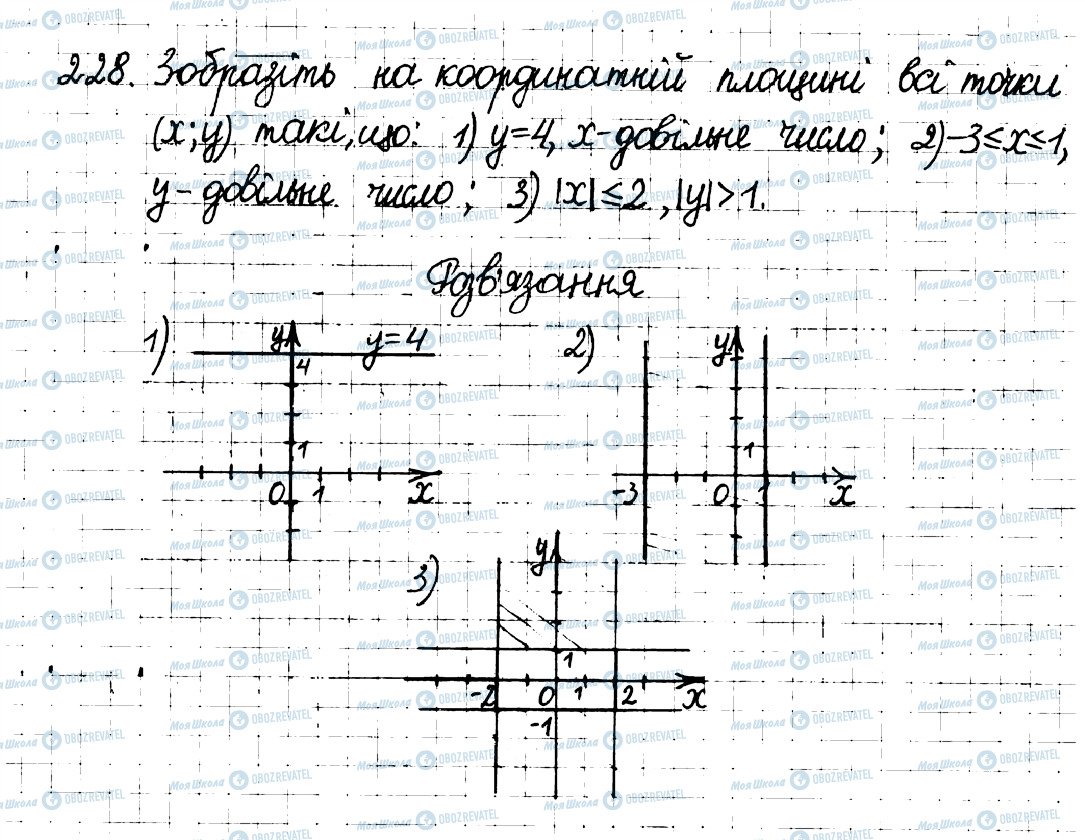 228. Зобразіть на координатній площині всі точки
(x;y) такі, що: 1) y=4, x-довільне число; 2) -3≤x≤1,
y-довільне число; 3) |x|≤2, |y|>1.
Розв'язання
1) y y=4 2) y
4
1 1
0 1 x -3 0 1 x
3) y
1
-2 0 1 2 x
-1
МОЯ ШКОЛА OBOZREVATEL